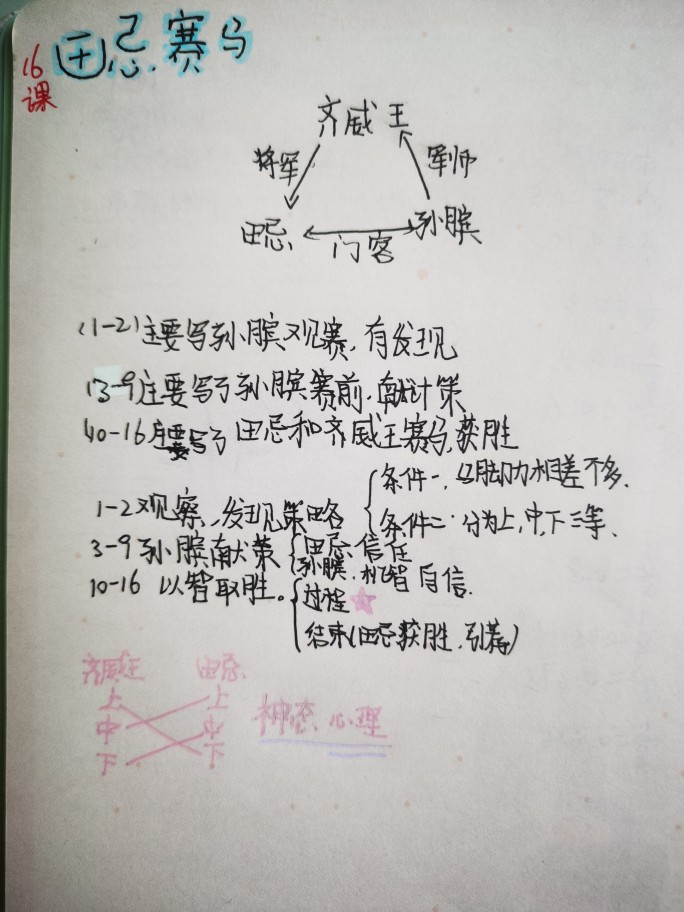 16课
田忌赛马
齐威王
将军 军师
田忌 孙膑
门客
(1-2)主要写孙膑观赛,有发现
(3-9)主要写了孙膑赛前,献计策
(10-16)主要写了田忌和齐威王赛马,获胜
条件一,马脚力相差不多.
1-2观察、发现策略
条件二:分为上,中,下三等、
3-9孙膑献策
田忌:信任
孙膑、机智自信.
10-16 以智取胜。
过程☆
结束(田忌获胜.引荐)
齐威王 田忌
上 上
中 中
下 下
神态 心理